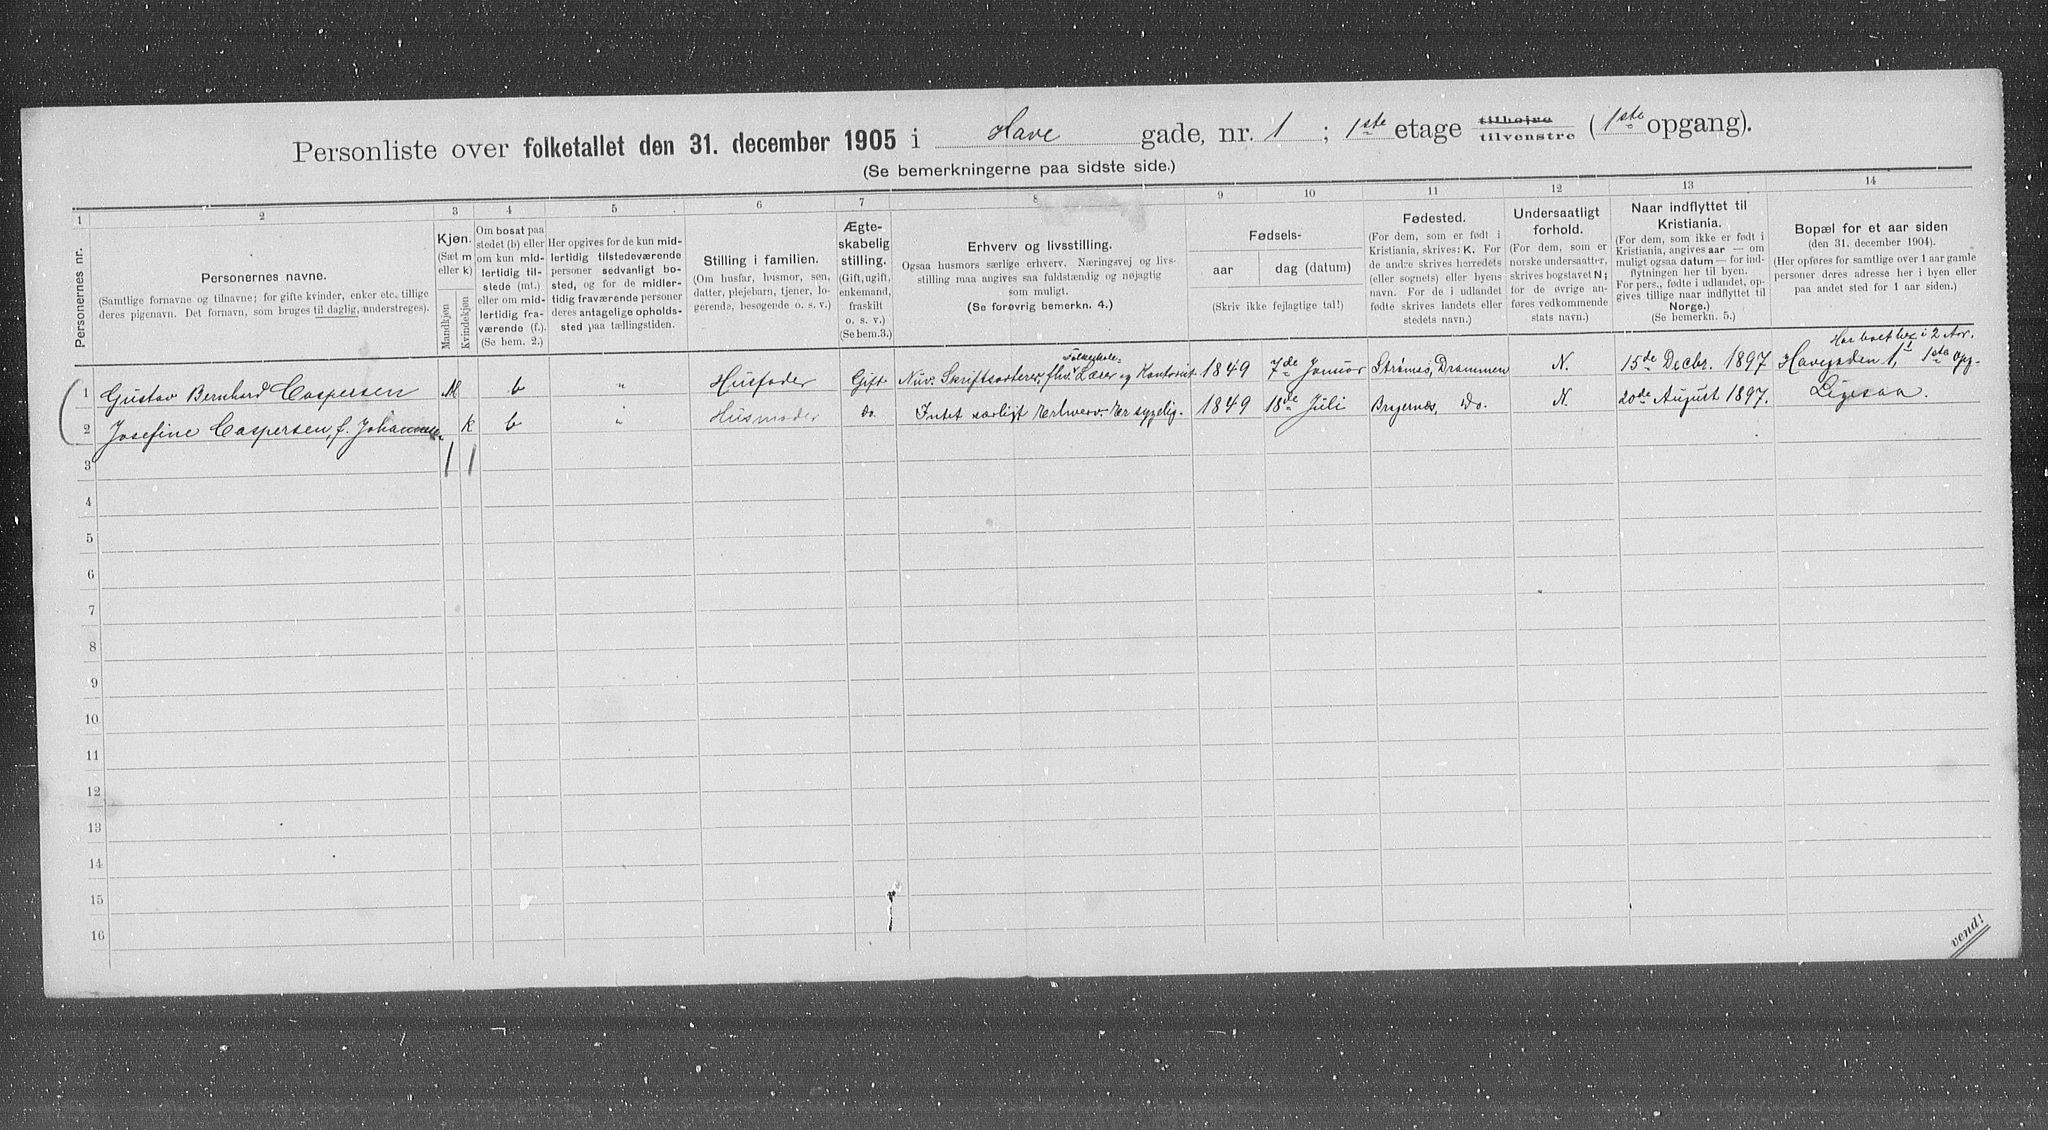 Personliste over folketallet den 31. december 1905 i Have gade, nr. 1 ; 1ste etage tilhøjre tilvenstre (1ste opgang).
(Se bemerkningerne paa sidste side.)
1 2 3 4 5 6 7 8 9 10 11 12 13 14
Personernes nr.
Personernes navne.
(Samtlige fornavne og tilnavne; for gifte kvinder, enker etc. tillige
deres pigenavn. Det fornavn, som bruges til daglig, understreges).
Kjøn.
(Sæt m
eller k)
Mandkjøn
Kvindekjøn
Om bosat paa
stedet (b) eller
om kun mid-
lertidig til-
stede (mt.)
eller om mid-
lertidig fra-
værende (f.).
(Se bem. 2.)
Her opgives for de kun mid-
lertidig tilstedeværende
personer sedvanligt bo-
sted, og for de midler-
tidig fraværende personer
deres antagelige opholds-
sted paa tællingstiden.
Stilling i familien.
(Om husfar, husmor, søn,
datter, plejebarn, tjener, lo-
gerende, besøgende o. s. v.)
Ægte-
skabelig
stilling.
(Gift, ugift,
enkemand,
fraskilt
o. s. v.)
(Se bem. 3.)
Erhverv og livsstilling.
Ogsaa husmors særlige erhverv. Næringsvej og livs-
stilling maa angives saa fuldstændig og nøjagtig
som muligt.
(Se forøvrig bemerkn. 4.)
Fødsels-
aar
dag (datum)
(Skriv ikke fejlagtige tal!)
Fødested.
(For dem, som er født i
Kristiania, skrives: K. For
de andre skrives herredets
(eller sognets) eller byens
navn. For de i udlandet
fødte skrives landets eller
stedets navn.)
Undersaatligt
forhold.
(For dem, som er
norske undersaatter,
skrives bogstavet N;
for de øvrige an-
føres vedkommende
stats navn.)
Naar indflyttet til
Kristiania.
(For dem, som ikke er født i
Kristiania, angives aar — om
muligt ogsaa datum — for ind-
flytningen her til byen.
For pers., fødte i udlandet, op-
gives tillige naar indflyttet til
Norge.)
(Se bemerkn. 5.)
Bopæl for et aar siden
(den 31. december 1904).
(Her opføres for samtlige over 1 aar gamle
personer deres adresse her i byen eller
paa andet sted for 1 aar siden.)
Har boet her i 2 Aar.
Folkeskole-
1 Gustav Bernhard Caspersen M b " Husfader Gift Nuv. Skriftsorterer, fhv. Læser og Kontorist 1849 7de Januar Strømsø, Drammen N. 15de Decbr. 1897 Havegaden 1, 1ste opg.
2 Josefine Caspersen, f. Johannesen K b " Husmoder do. Intet særligt Erhverv. Er sygelig. 1849 18de Juli Bragernes, Do. N. 20de August 1897. Ligesaa.
3 1 1
4
5
6
7
8
9
10
11
12
13
14
15
16
vend!